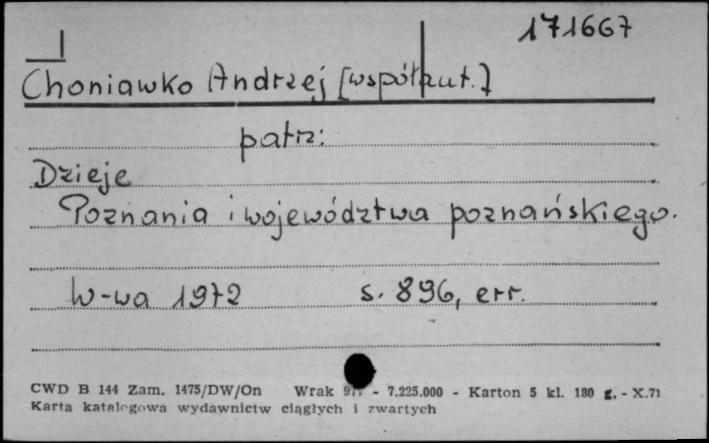 171667
Choniawko Andrzej [współaut.]
patrz:
Dzieje
Poznania i województwa poznańskiego.
W-wa 1972 s. 896, err.
CWD B 144 Zam. 1475/DW/On Wrak - 7.225.000 - Karton 5 kl. 180 g. - X.71
Karta katalogowa wydawnictw ciągłych i zwartych